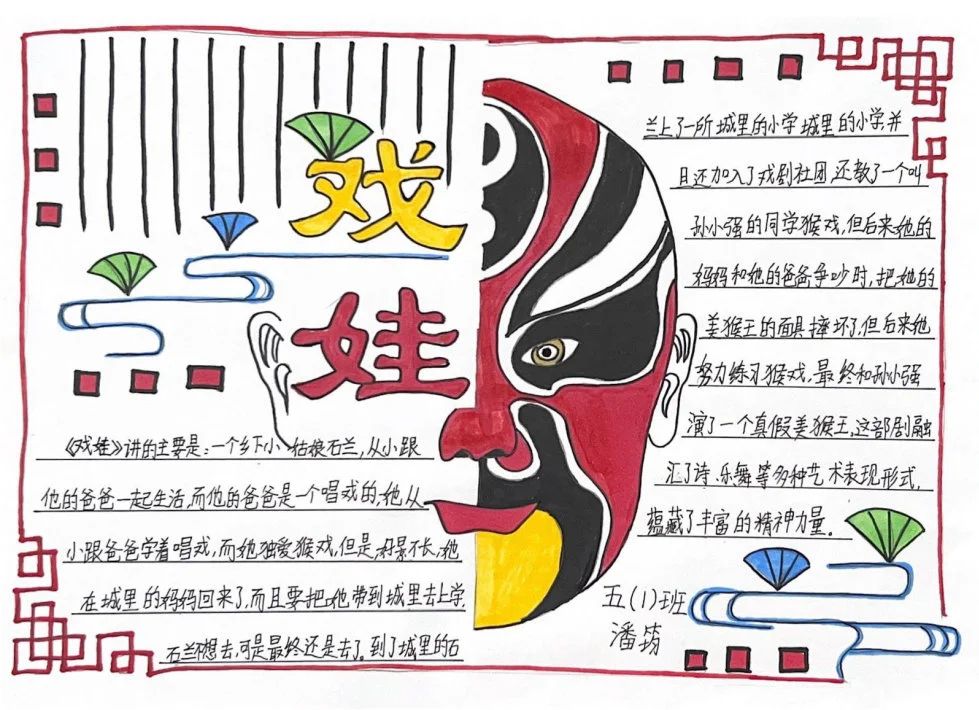 戏
娃
《戏娃》讲的主要是：一个乡下小姑娘石兰，从小跟
他的爸爸一起生活，而他的爸爸是一个唱戏的，她从
小跟爸爸学着唱戏，而她独爱猴戏，但是，好景不长，她
在城里的妈妈回来了，而且要把她带到城里去上学，
石兰不想去，可是最终还是去了。到了城里的石
兰上了一所城里的小学城里的小学，并
且还加入了戏剧社团，还教了一个叫
孙小强的同学猴戏，但后来她的
妈妈和她的爸爸争吵时，把她的
美猴王的面具摔坏了，但后来她
努力练习猴戏，最终和孙小强
演了一个真假美猴王，这部剧融
汇了诗、乐舞等多种艺术表现形式，
蕴藏了丰富的精神力量。
五(1)班
潘筠